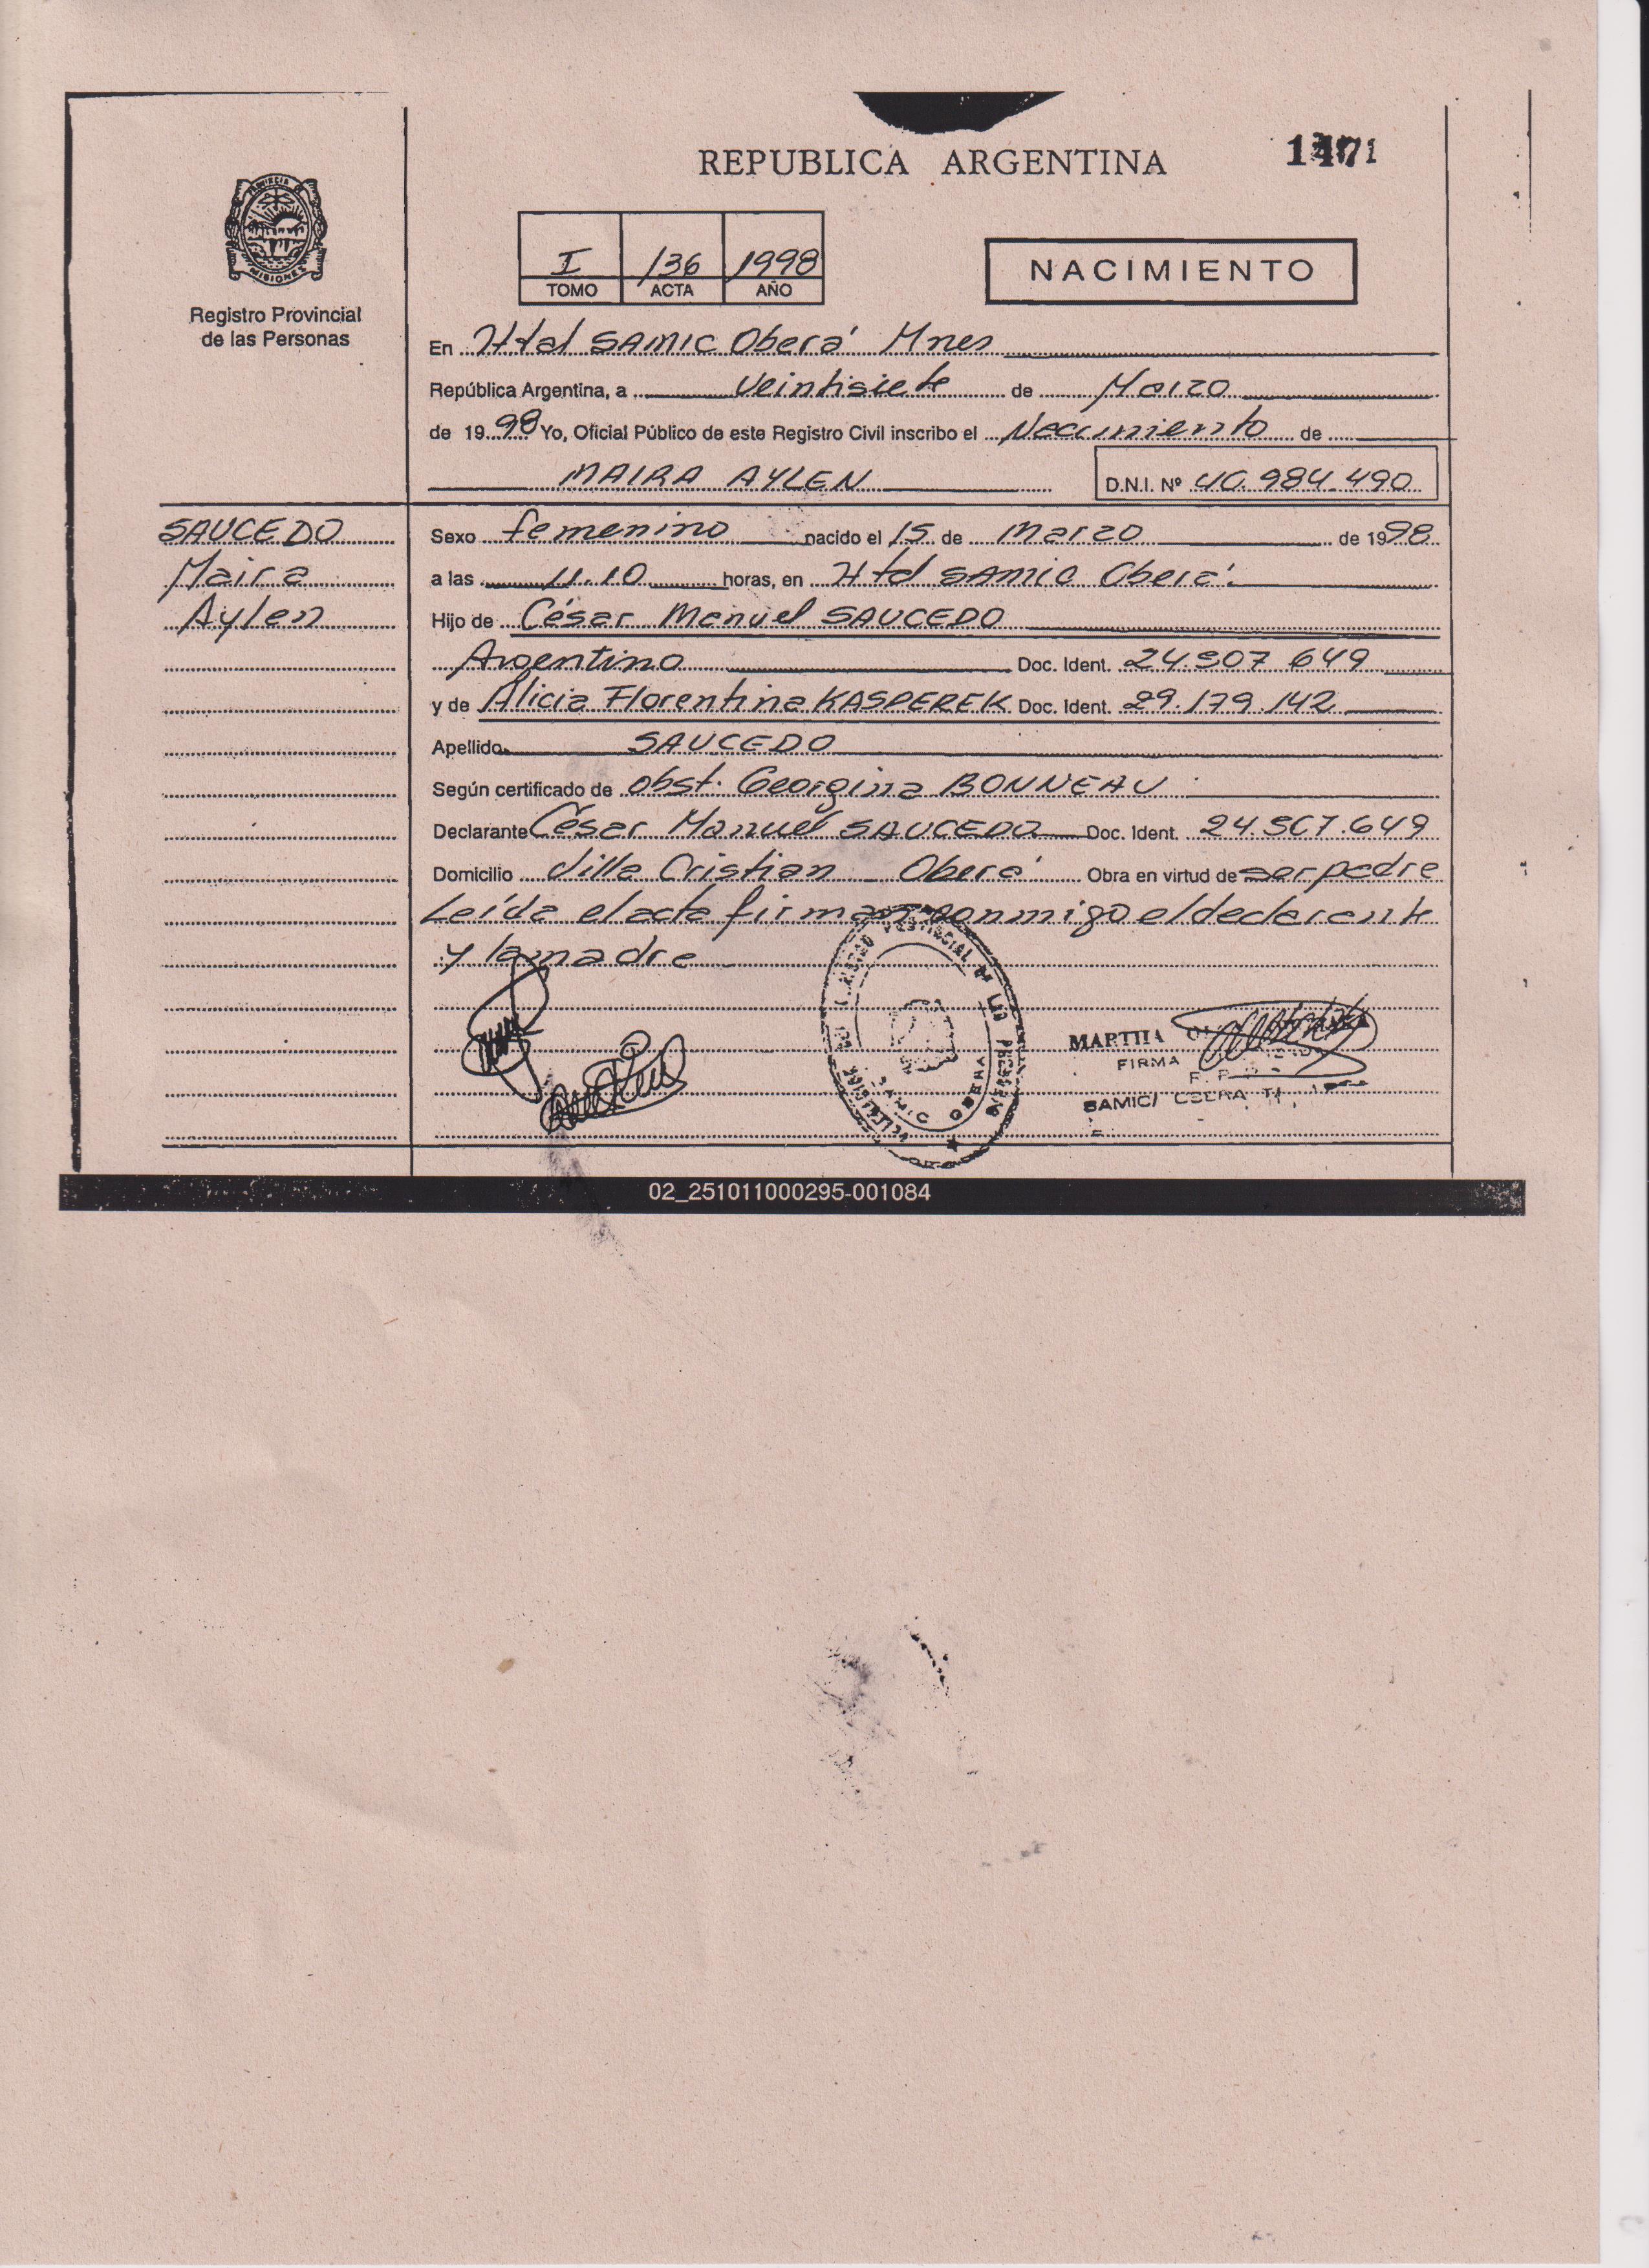 REPUBLICA ARGENTINA
PROVINCIA DE
MISIONES
Registro Provincial
de las Personas
I 136 1998
TOMO ACTA AÑO
NACIMIENTO
En Htal SAMIC Oberá Mnes
República Argentina, a veintisiete de Marzo
de 1998 Yo, Oficial Público de este Registro Civil inscribo el Nacimiento de
MAIRA AYLEN D.N.I. Nº 40.984.490
SAUCEDO
Maira
Aylen
Sexo femenino nacido el 15 de Marzo de 1998
a las 11.10 horas, en Htal SAMIC Oberá.
Hijo de César Manuel SAUCEDO
Argentino Doc. Ident. 24.507.649
y de Alicia Florentina KASPEREK Doc. Ident. 29.179.142
Apellido SAUCEDO
Según certificado de obst. Georgina BONNEAU
Declarante César Manuel SAUCEDO Doc. Ident. 24.507.649
Domicilio Villa Cristian Oberá Obra en virtud de ser padre
Leída el acta firman conmigo el declarante
y la madre
MARTHA
FIRMA
SAMIC/ OBERA
SAMIC OBERA
02_251011000295-001084